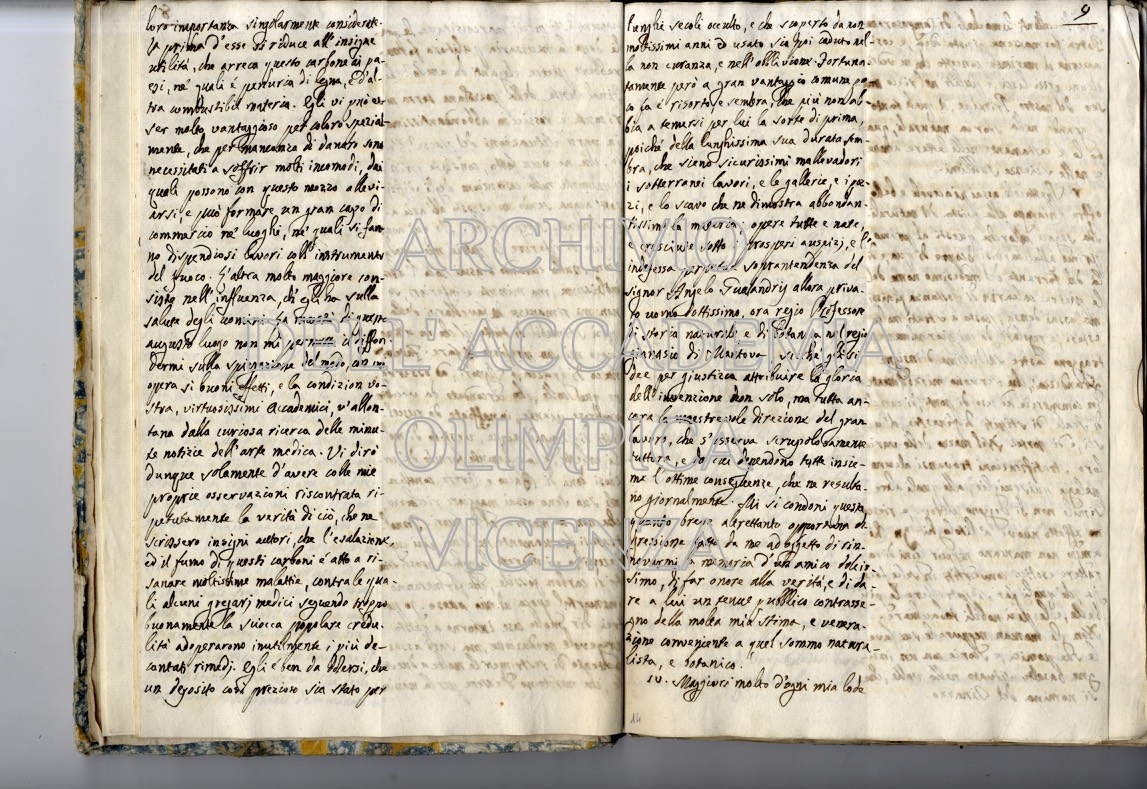 loro importanza singolarmente considerate.
la prima d'esse si riduce all'insigne
utilità, che arreca questo carbone ai pa-
esi, ne' quali é penuria di legna, ed al-
tra combustibil materia. Egli vi può es-
ser molto vantaggioso per coloro spezial-
mente, che per mancanza di danaro sono
necessitati a soffrir molti incomodi, dai
quali possono con questo mezzo allevi-
arsi, e può formare un gran capo di
commercio ne' luoghi, ne' quali si fan-
no dispendiosi lavori coll'instrumento
del fuoco. L'altra molto maggiore con-
siste nell'influenza, ch'egli ha sulla
salute degli uomini. La maestà di questo
augusto luogo non mi permette il diffon-
dermi sulla spiegazione del modo, con cui
opera sì buoni effetti, e la condizion vo-
stra, virtuosissimi Accademici, v'allon-
tana dalla curiosa ricerca delle minu-
te notizie dell'arte medica. Vi dirò
dunque solamente d'avere colle mie
proprie osservazioni riscontrata ri-
petutamente la verità di ciò, che ne
scrissero insigni autori, che l'esalazione,
ed il fumo di questi carboni é atto a ri-
sanare moltissime malattie, contra le qua-
li alcuni gregarj medici seguendo troppo
buonamente la sciocca popolare credu-
lità adoperarono inutilmente i più de-
cantati rimedj. Egli è ben da dolersi, che
un deposito così prezioso sia stato per
9
lunghi secoli occulto, e che scoperto da non
moltissimi anni ed usato sia poi caduto nel-
la non curanza, e nell'obblivione. Fortuna-
tamente però a gran vantaggio comune po-
co fa è risorto, e sembra, che più non ab-
bia a temersi per lui la sorte di prima,
poiché della lunghissima sua durata sem-
bra, che sieno sicurissimi mallevadori
i sotterranei lavori, e le gallerie, e i poz-
zi, e lo scavo che ne dimostra abbondan-
tissima la materia; opere tutte e nate,
e cresciute sotto i prosperi auspizj, e l'
indefessa perpetua soprantendenza del
signor Angelo Gualandris allora priva-
to uomo dottissimo, ora regio Professore
di storia naturale e di botanica nel regio
ginnasio di Mantova, sicché gli si
dee per giustizia attribuire la gloria
dell'invenzione non solo, ma tutta an-
cora la maestrevole direzione del gran
lavoro, che s'osserva scrupolosamente
tuttora, e da cui dependono tutte insie-
me l'ottime conseguenze, che ne resulta-
no giornalmente. Mi si condoni questa
quanto breve altrettanto opportuna di-
gressione fatta da me ad oggetto di rin-
novarmi la memoria d'un amico dolcis-
simo, di far onore alla verità, e di da-
re a lui un tenue pubblico contrasse-
gno della molta mia stima, e venera-
zione conveniente a quel sommo natura-
lista, e botanico.
IV. Maggiori molto d'ogni mia lode
14
ARCHIVIO
DELL'ACCADEMIA
OLIMPICA
VICENZA